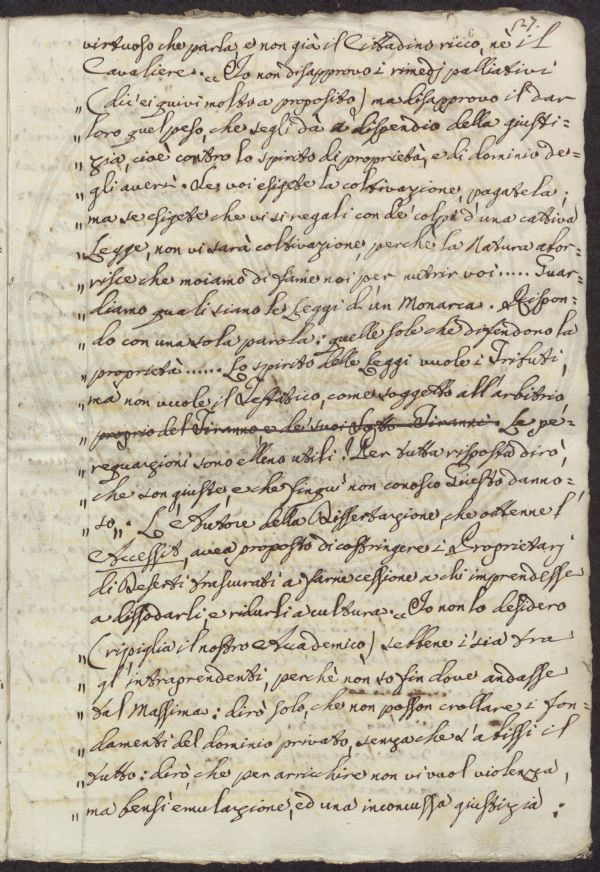 27.
virtuoso che parla e non già il Cittadino ricco, nè il
Cavaliere. „ Io non disapprovo i rimedj palliativi
„ (dic'ei quivi molto a proposito) ma disapprovo il dar
„ loro quel peso, che segli dà a dispendio della giusti=
„ zia, cioè contro lo spirito di proprietà, e di dominio de=
„ gli averi. Se voi esigete la coltivazione, pagatela;
„ ma se esigete che vi si regali con de' colpi d'una cattiva
„ Legge, non vi sarà coltivazione, perchè la Natura abor=
„ risce che moiamo di fame noi per nutrir voi..... Guar=
„ diamo quali siano le Leggi d'un Monarca. Rispon=
„ do con una sola parola: quelle sole che difendono la
„ proprietà...... Lo spirito delle Leggi vuole i Trifuti,
„ mà non vuole il , come soggetto all'arbitrio
„ proprio del Tiranno e de' suoi Sotto Tiranni. Le pe=
„ requazioni sono elleno utili? Per tutta risposta dirò,
„ che son giuste, e che fin quì non conosco Giusto danno=
„ so „. L'Autore della Dissertazione, che ottenne l'
Accessit, avea proposto di costringere i Proprietarj
di Deserti trascurati a farne cessione a chi imprendesse
a dissodarli, e ridurli a cultura. „ Io non lo desidero
„ (ripiglia il nostro Accademico) sebbene i' sia tra
„ gl'intraprendenti, perchè non so fin dove andasse
„ tal Massima: dirò solo, che non posson crollare i fon=
„ damenti del dominio privato, senza che s'abissi il
„ tutto: dirò, che per arricchire non vi vuol violenza,
„ ma bensì emulazione, ed una inconcussa giustizia: